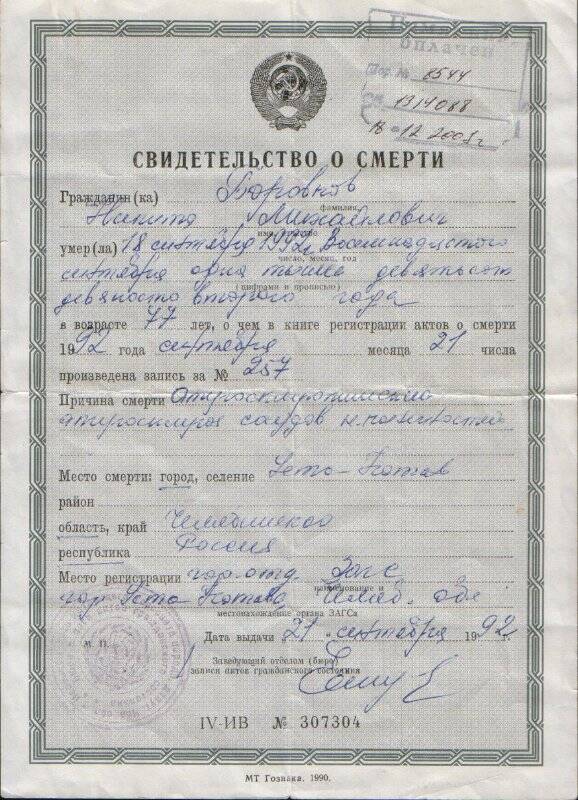 оплачен
8544
1314088
18-12-2008г
СВИДЕТЕЛЬСТВО О СМЕРТИ
Гражданин(ка) Боровков
фамилия,
Никита Михайлович
имя, отчество
умер(ла) 18 сентября 1992г. Восемнадцатого
число, месяц, год
сентября одна тысяча девятьсот
(цифрами и прописью)
девяносто второго года
в возрасте 77 лет, о чем в книге регистрации актов о смерти
1992 года сентября месяца 21 числа
произведена запись за № 257
Причина смерти
Место смерти: город, селение Усть-Катав
район
область, край Челябинская
республика Россия
Место регистрации гор. отд. Загс
наименование и
гор Усть-Катава, Челяб. обл
местонахождение органа ЗАГСа
Дата выдачи 21 сентября 1992 г.
М. П.
Заведующий отделом (бюро)
записи актов гражданского состояния
IV-ИВ № 307304
МТ Гознака. 1990.